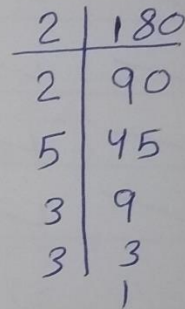 2 | 180
2 | 90
5 | 45
3 | 9
3 | 3
1